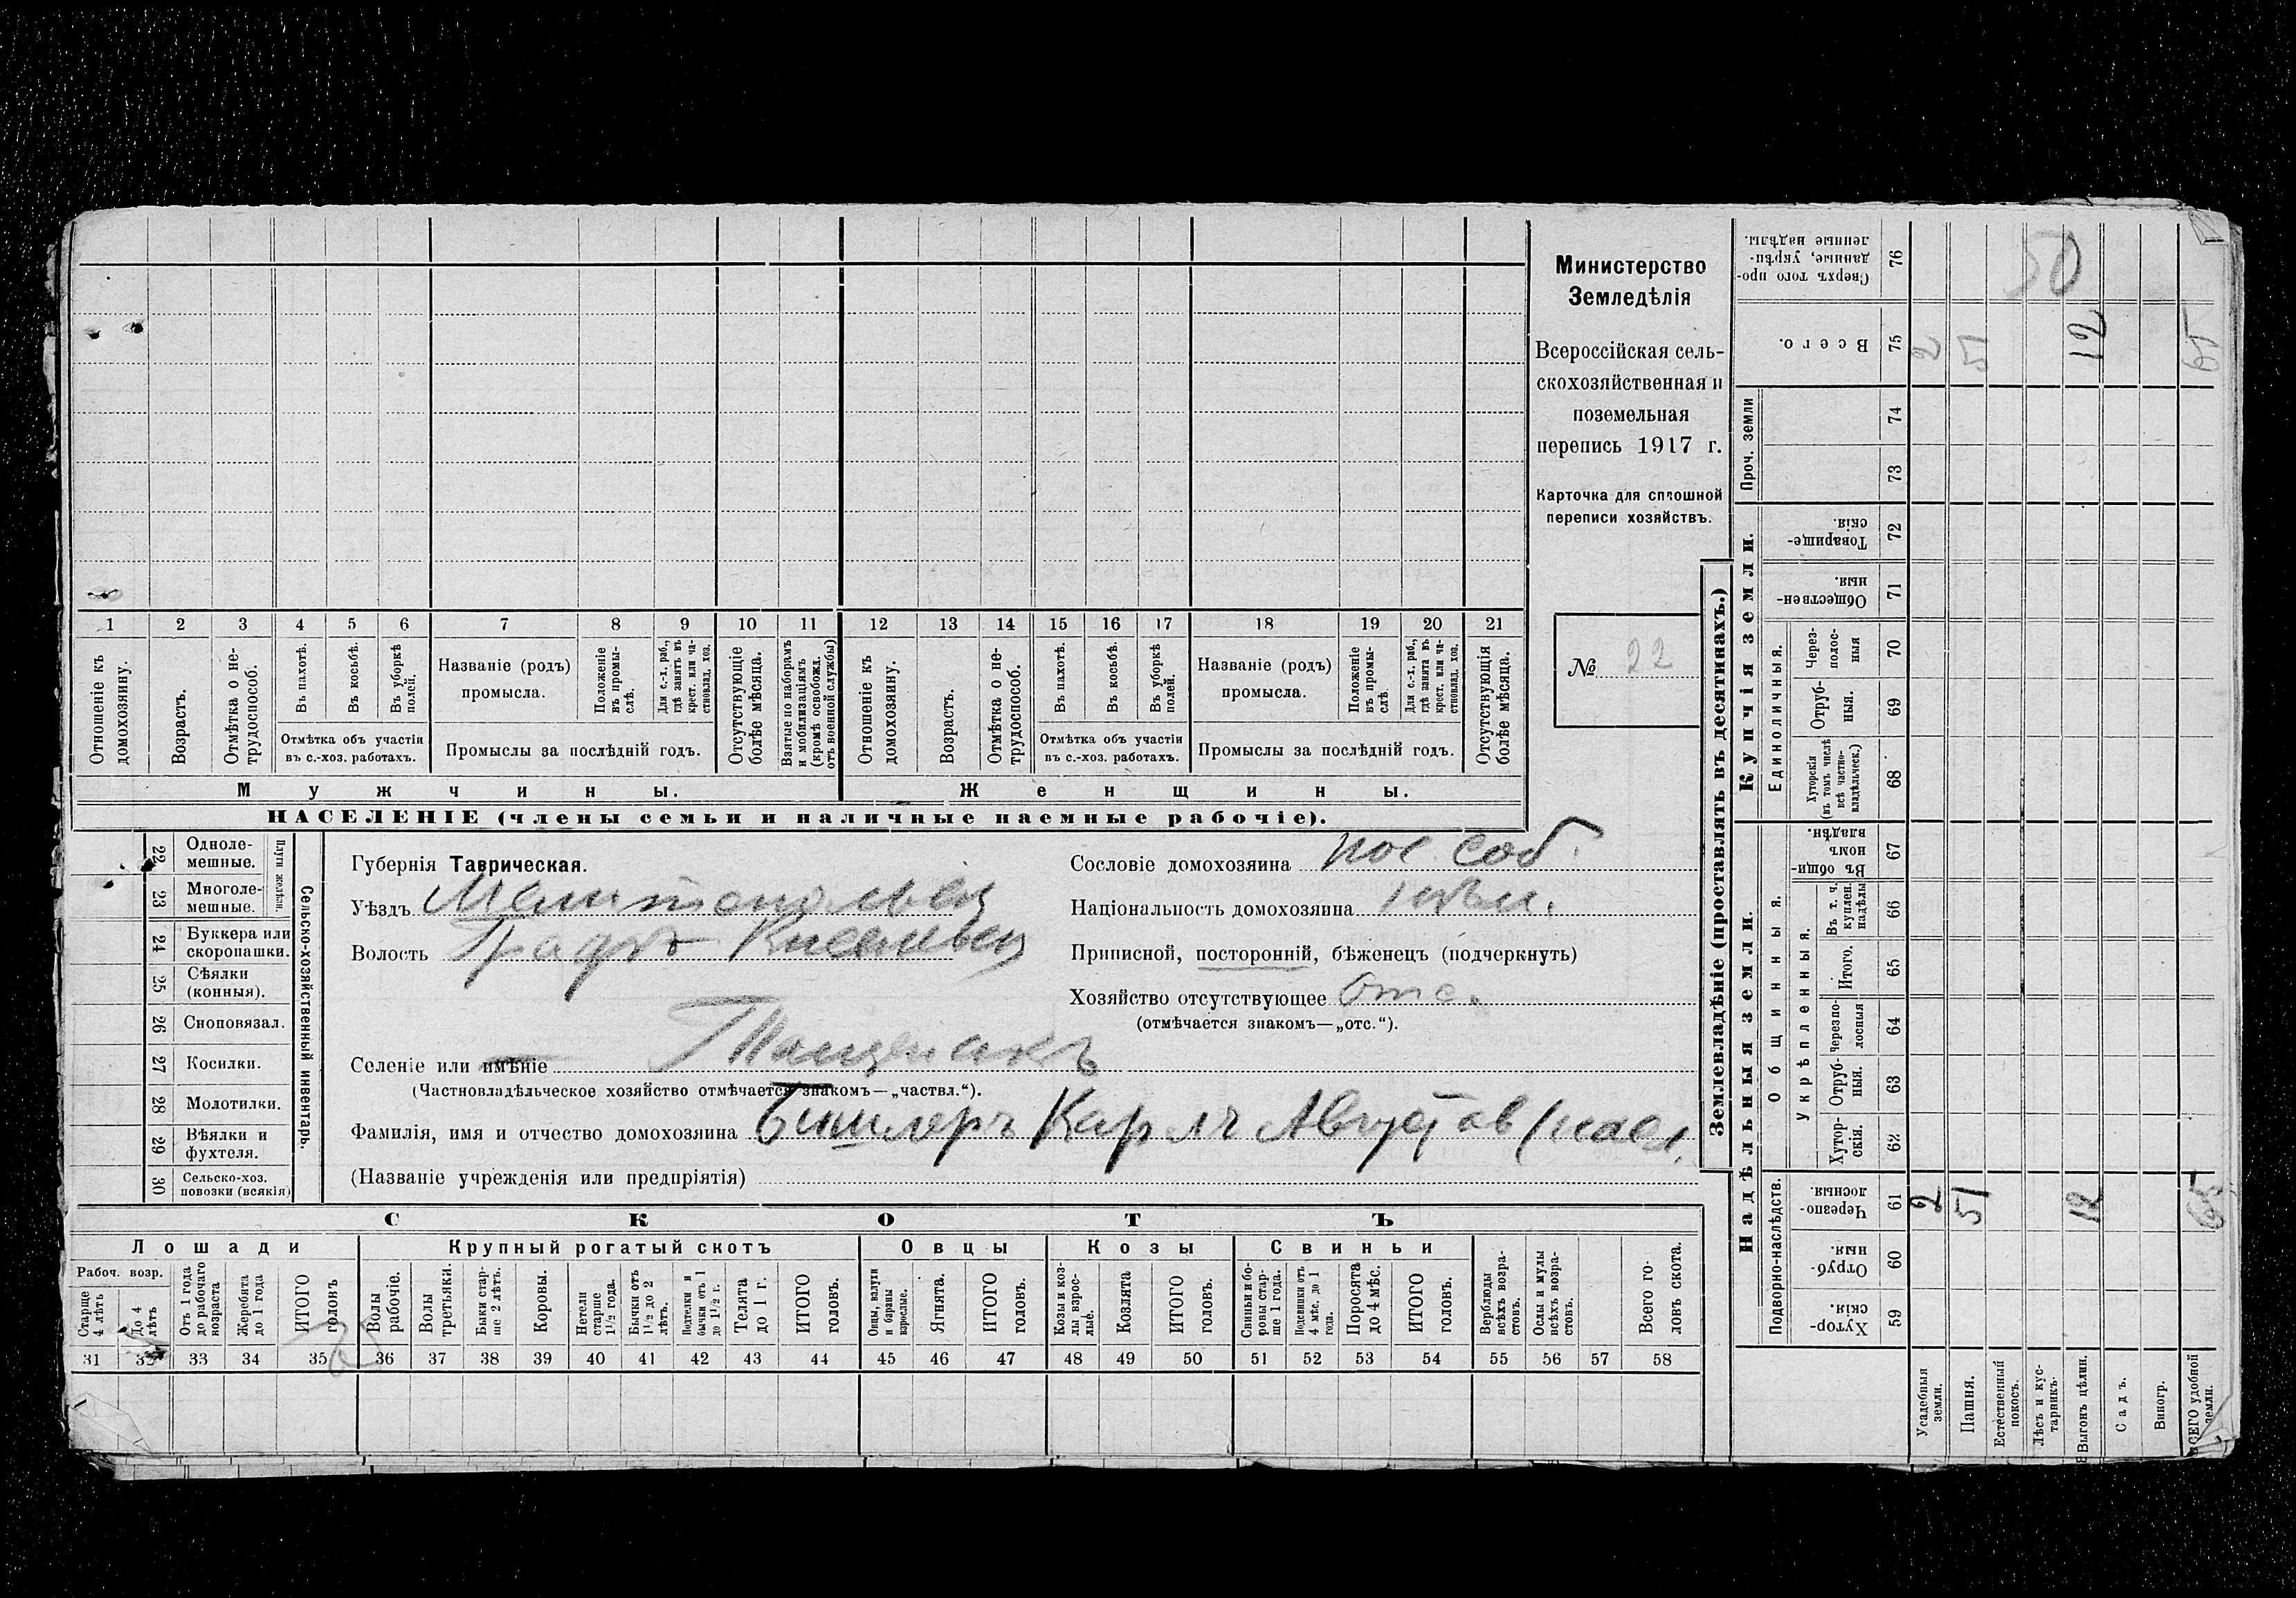 Министерство
Земледѣлія
Всероссійская сель-
скохозяйственная и
поземельная
перепись 1917 г.
Карточка для сплошной
переписи хозяйствъ.
№ 22
1 2 3 4 5 6 7 8 9 10 11 12 13 14 15 16 17 18 19 20 21
Отношеніе къ домохозяину.
Возрастъ.
Отмѣтка о не-трудоспособ.
Въ пахотѣ.
Въ косьбѣ.
Въ уборкѣ полей.
Отмѣтка объ участіи
въ с.-хоз. работахъ.
Названіе (родъ)
промысла.
Положеніе въ промы-слѣ.
Для с.-х. раб., гдѣ занятъ въ крест. или ча-стновлад. хоз.
Промыслы за послѣдній годъ.
Отсутствующіе болѣе мѣсяца.
Взятые по наборамъ и мобилизаціямъ (кромѣ освобожд. отъ военной службы)
Отношеніе къ домохозяину.
Возрастъ.
Отмѣтка о не-трудоспособ.
Въ пахотѣ.
Въ косьбѣ.
Въ уборкѣ полей.
Отмѣтка объ участіи
въ с.-хоз. работахъ.
Названіе (родъ)
промысла.
Положеніе въ промы-слѣ
Для с.-х. раб., гдѣ занята въ крест. или ча-стновлад. хоз.
Промыслы за послѣдній годъ.
Отсутствующія болѣе мѣсяца.
Мужчины.
Женщины.
НАСЕЛЕНІЕ (члены семьи и наличные наемные рабочіе).
Сельско-хозяйственный инвентарь.
Плуги желѣзн.
22 Одноле-мешные.
23 Многоле-мешные.
24 Буккера или скоропашки.
25 Сѣялки (конныя).
26 Сноповязал.
27 Косилки.
28 Молотилки.
29 Вѣялки и фухтеля.
30 Сельско-хоз. повозки (всякія)
Губернія Таврическая.
Уѣздъ Мелитопольск
Волость
Селеніе или имѣніе Тащенакъ
(Частновладѣльческое хозяйство отмѣчается знакомъ—„частвл.“).
Фамилія, имя и отчество домохозяина Бишлеръ Карлъ Августов (насл.
(Названіе учрежденія или предпріятія)
Сословіе домохозяина пос. соб.
Національность домохозяина нѣм.
Приписной, посторонній, бѣженецъ (подчеркнуть)
Хозяйство отсутствующее Отс.
(отмѣчается знакомъ—„отс.“).
СКОТЪ
Лошади
Крупный рогатый скотъ
Овцы
Козы
Свиньи
Рабоч. возр.
Старше 4 лѣтъ
До 4 лѣтъ
Отъ 1 года до рабочаго возраста
Жеребята до 1 года
ИТОГО головъ
Волы рабочіе.
Волы третьяки.
Быки стар-ше 2 лѣтъ.
Коровы.
Нетели старше 1½ года.
Бычки отъ 1½ до 2 лѣтъ.
Подтелки и бычки отъ 1 до 1½ г.
Телята до 1 г.
ИТОГО головъ.
Овцы, валухи и бараны взрослые.
Ягнята.
ИТОГО головъ.
Козы и коз-лы взрос-лые.
Козлята
ИТОГО головъ.
Свиньи и бо-ровы стар-ше 1 года.
Подсвинки отъ 4 мѣс. до 1 года.
Поросята до 4 мѣс.
ИТОГО головъ.
Верблюды всѣхъ возра-стовъ.
Ослы и мулы всѣхъ возра-стовъ.
Всего го-ловъ скота.
31 32 33 34 35 36 37 38 39 40 41 42 43 44 45 46 47 48 49 50 51 52 53 54 55 56 57 58
Землевладѣніе (проставлять въ десятинахъ.)
Надѣльныя земли.
Купчія земли.
Проч. земли
Подворно-наслѣдств.
Общинныя.
Укрѣпленныя.
Единоличныя.
Сверхъ того про-данные, укрѣп-ленные надѣлы. 76 50
Всего. 75 2 51 12 65
74
73
Товарище-скія. 72
Обществен-ныя. 71
Через-полос-ныя 70
Отруб-ныя. 69
Хуторскія (въ томъ числѣ всѣ частно-владѣльческ.) 68
Въ общи-номъ владѣн. 67
Въ т. ч. куплен. надѣлы 66
Итого. 65
Черезпо-лосныя 64
Отруб-ныя. 63
Хутор-скія. 62
Черезпо-лосныя. 61 2 51 12 65
Отруб-ныя. 60
Хутор-скія. 59
Усадебныя земли.
Пашня.
Естественный покосъ.
Лѣсъ и кус-тарникъ.
Выгонъ цѣлин.
Садъ.
Виногр.
ВСЕГО удобной земли.